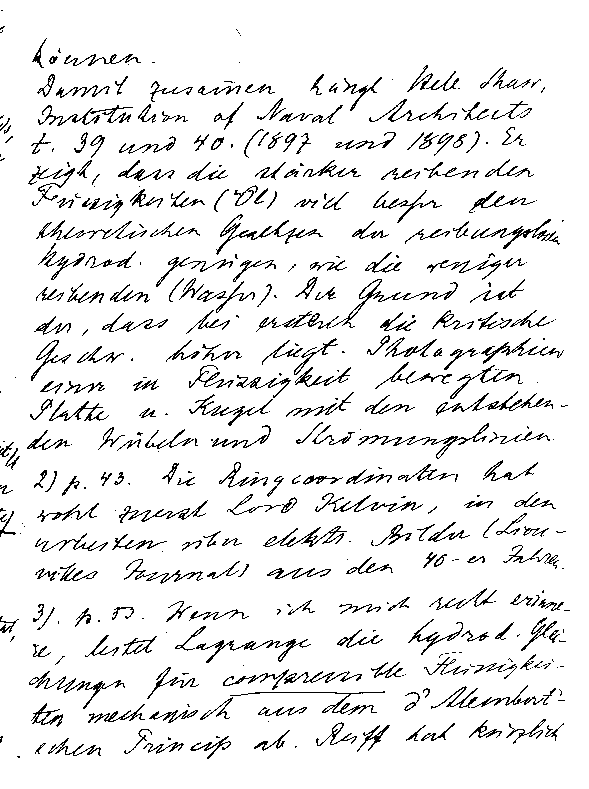 können.
Damit zusam̅en hängt Hele Shaw,
Institution of Naval Architects
t. 39 und 40. (1897 und 1898). Er
zeigt, dass die stärker reibenden
Flüssigkeiten (Öl) viel besser den
theoretischen Gesetzen der reibungslosen
Hydrod. genügen, wie die weniger
reibenden (Wasser). Der Grund ist
der, dass bei ersteren die kritische
Geschw. höher liegt. Photographien
einer in Flüssigkeit bewegten
Platte u. Kugel mit den entstehen-
den Wirbeln und Strömungslinien
2) p. 43. Die Ringcoordinaten hat
wohl zuerst Lord Kelvin, in den
arbeiten über elektr. Bilder (Liou-
villes Journal) aus den 40-er Jahren.
3). p. 53. Wenn ich mich recht erinne-
re, leitet Lagrange die hydrod. Glei-
chungen für compressible Flüssigkei-
ten mechanisch aus dem d'Alembert'-
schen Princip ab. Reiff hat kürzlich